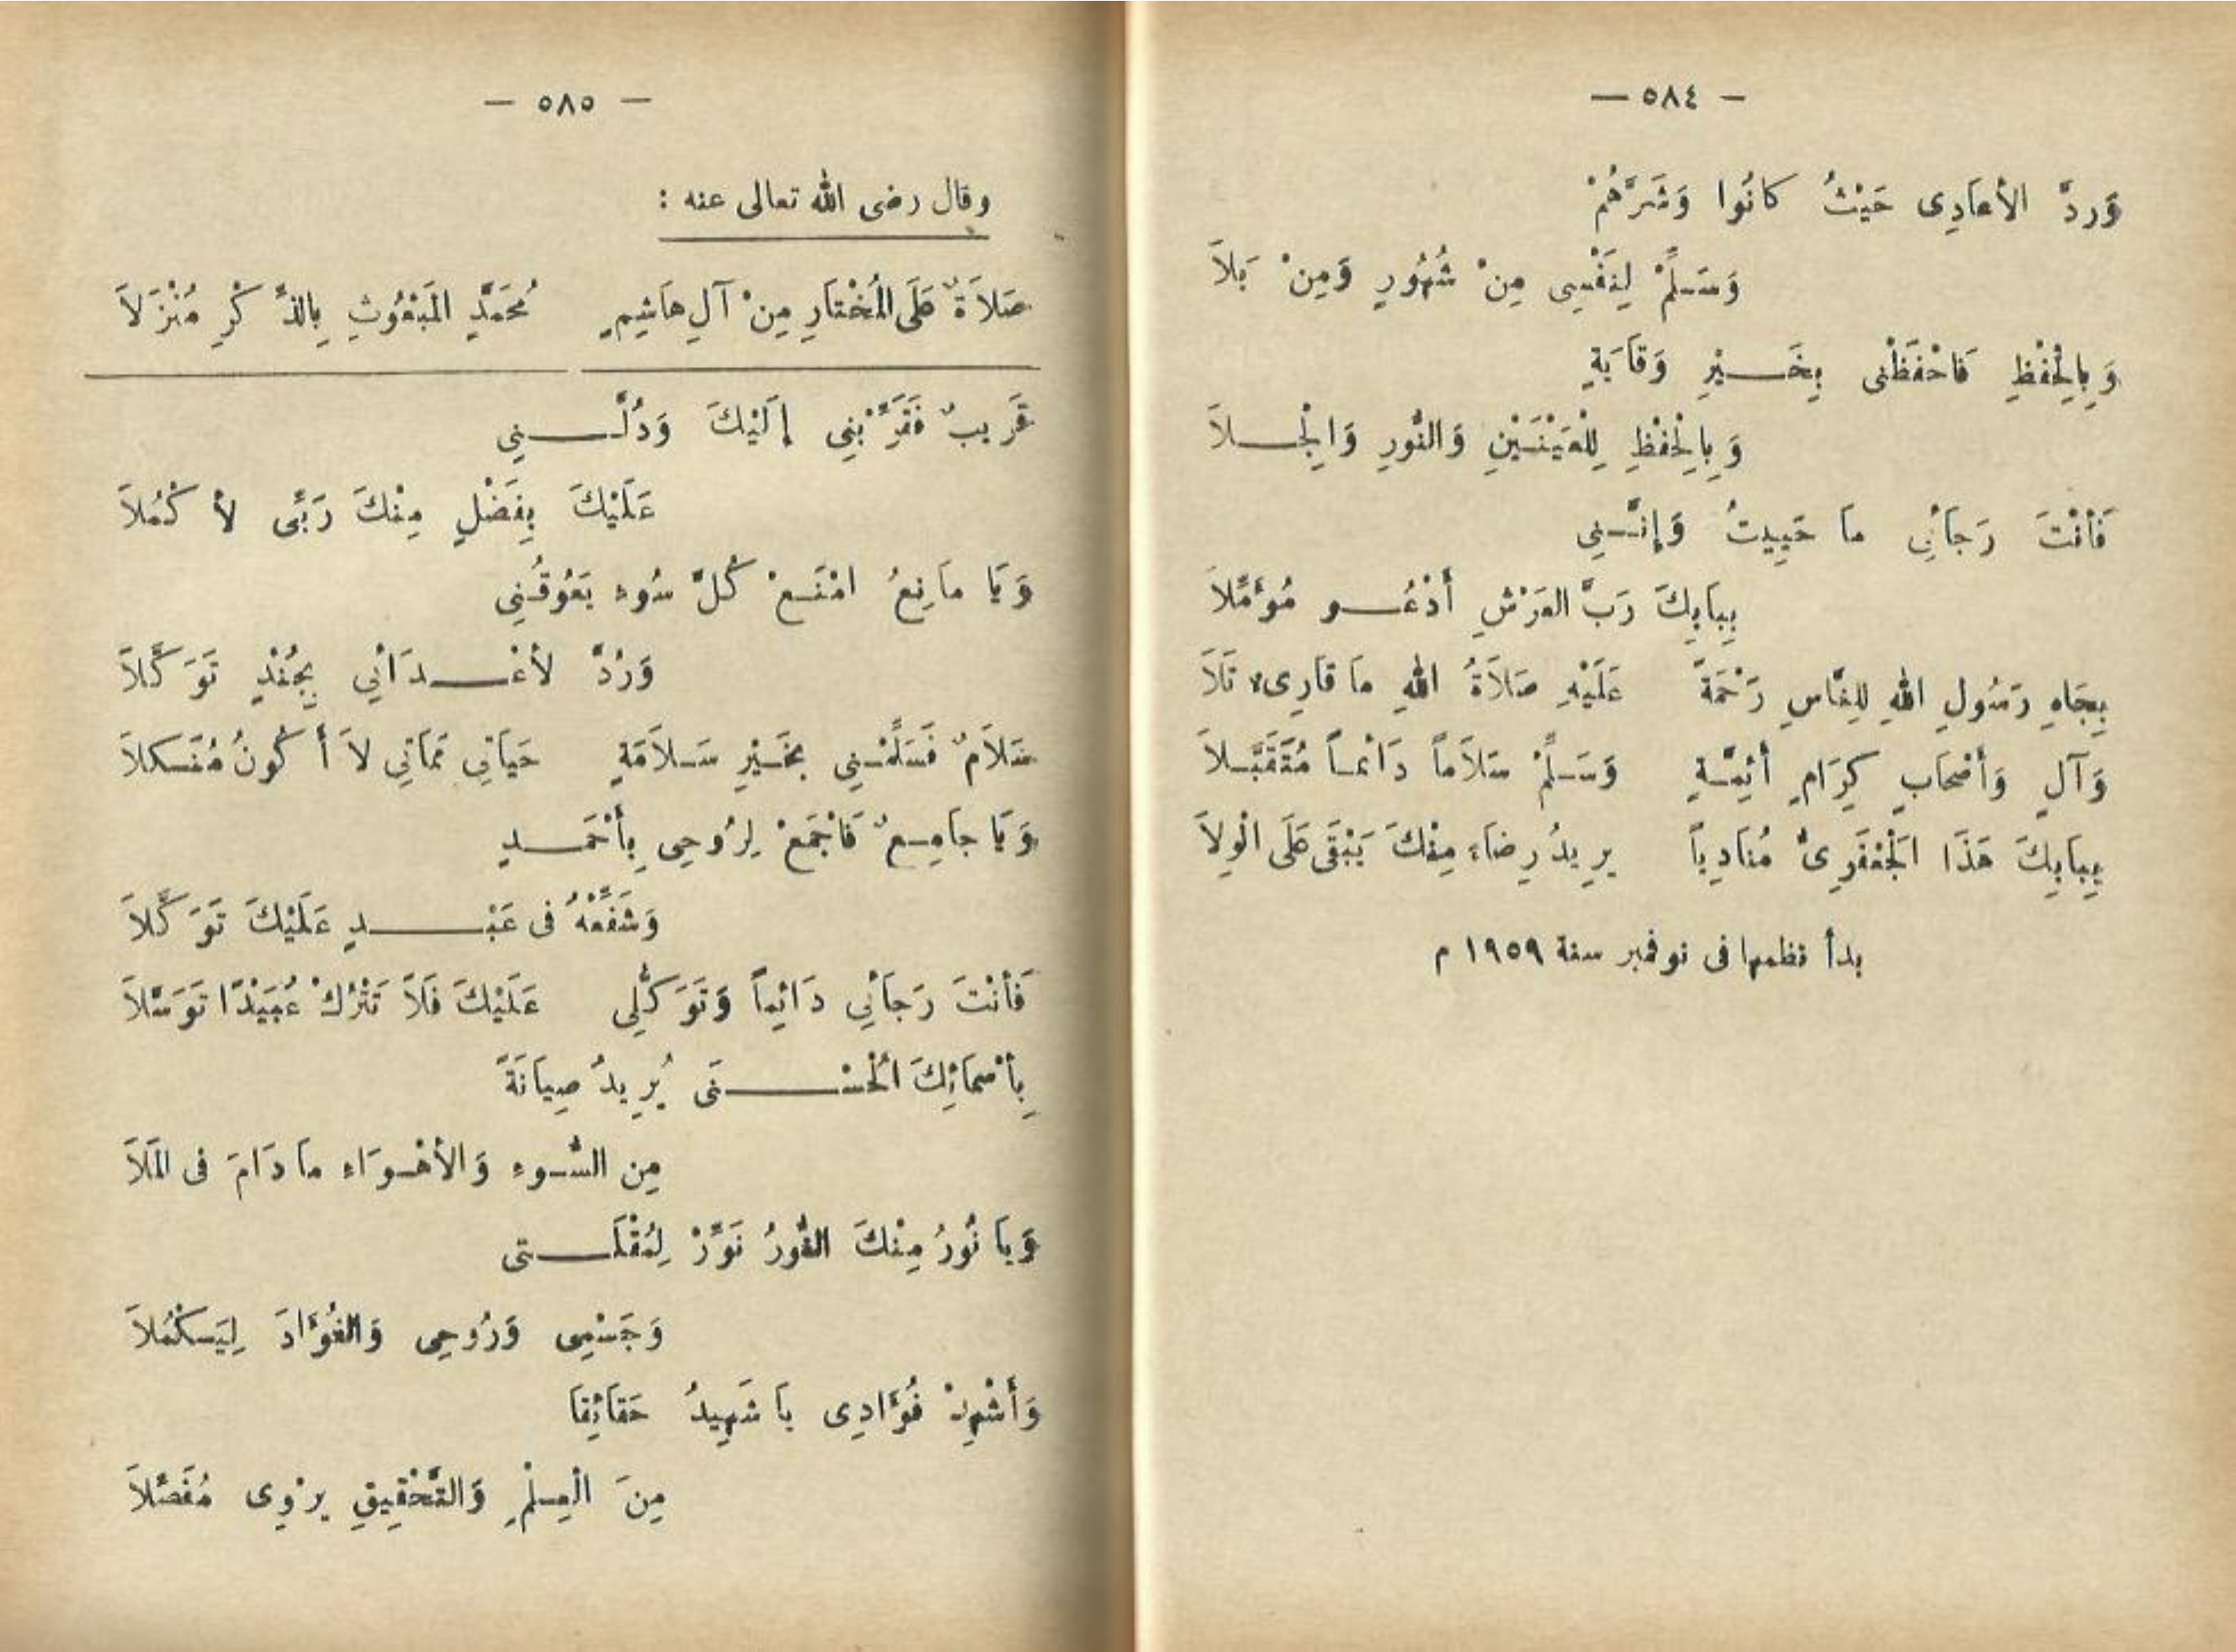 — ٥٨٤ —
وَردَّ الأعَادِى حَيْثُ كانُوا وَشَرَّهُمْ
وَسَلِّمْ لِنَفْسِى مِنْ شُهُورٍ وَمِنْ بَلاَ
وَبِالْحِفْظِ فَاحْفَظْنى بِخَيْرِ وَقَايَةٍ
وَبِالْحِفْظِ لِلْعَيْنَيْنِ وَالنُّورِ وَالْجِلاَ
فَأنْتَ رَجَائِى مَا حَيِيتُ وَإِنَّنِى
بِبَابِكَ رَبَّ العَرْشِ أَدْعُو مُؤَمِّلاَ
بِجَاهِ رَسُولِ اللهِ لِلنَّاسِ رَحْمَةً عَلَيْهِ صَلاَةُ اللهِ مَا قَارِىء تَلاَ
وَآلٍ وَأصْحَابٍ كِرَامٍ أئِمَّةٍ وَسَلِّمْ سَلاَماً دَائماً مُتَقَبَّلاَ
بِبَابِكَ هَذَا الْجَعْفَرِىُّ مُنَادِياً يريدُ رِضَاءَ مِنْكَ يَبْقَى عَلَى الْوِلاَ
بدأ نظمها فى نوفمبر سنة ١٩٥٩ م
— ٥٨٥ —
وقال رضى الله تعالى عنه :
صَلاَةٌ عَلَى الْمُخْتَارِ مِنْ آلِ هَاشِمٍ مُحَمَّدٍ الْمَبْعُوثِ بِالذِّكْرِ مُنْزَلاَ
قَرِيبٌ فَقَرِّبْنِي إِلَيْكَ وَدُلَّنِي
عَلَيْكَ بِفَضْلٍ مِنْكَ رَبِّى لأَكْمُلاَ
وَيَا مَانِعُ امْنَعْ كُلَّ سُوءِ يَعُوقُنِي
وَرُدَّ لأعْدَائِي بِجُنْدٍ تَوَكَّلاَ
سَلاَمٌ فَسَلِّمْنِي بِخَيْرِ سَلاَمَةٍ حَيَاتِي مَمَاتِي لاَ أَكُونُ مُنَكلاَ
وَيَا جَامِعٌ فَاجْمَعْ لِرُوحِى بِأَحْمَدٍ
وَشَفِّعْهُ فى عَبْدٍ عَلَيْكَ تَوَكَّلاَ
فَأنْتَ رَجَائِي دَائِماً وَتَوَكُّلِي عَلَيْكَ فَلاَ تَتْرُكْ عُبَيْدًا تَوَسَّلاَ
بِأَسْمَائِكَ الْحُسْنَى يُرِيدُ صِيَانَةً
مِن السُّوءِ وَالأهْوَاءِ مَا دَامَ فى الْمَلاَ
وَيَا نُورُ مِنْكَ النُّورُ نَوِّرْ لِمُقْلَتى
وَجَسْمِى وَرُوحِى وَالفُؤَادَ لِيَكْمُلاَ
وَأَشْهِدْ فُؤَادِى يَا شَهِيدُ حَقَائِقَا
مِنَ الْعِلْمِ وَالتَّحْقِيقِ يرْوِى مُفَصَّلاَ